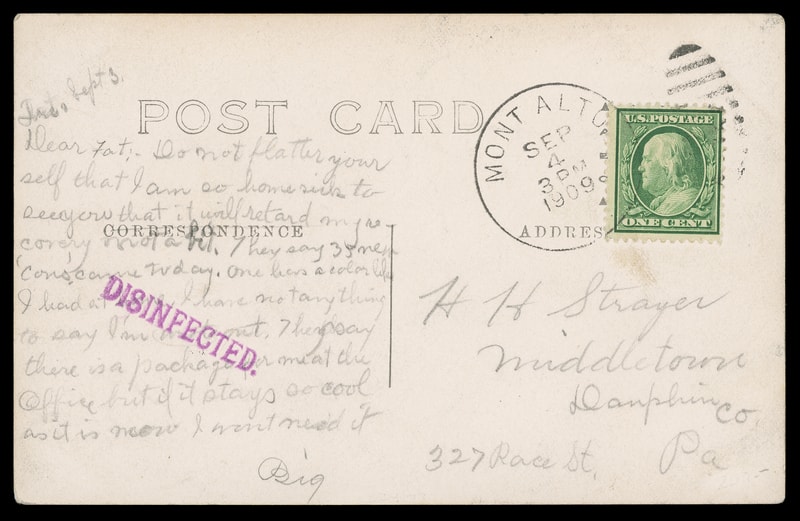 Sept 3.
POST CARD
Dear Fat:- Do not flatter your
self that I am so home sick to
see you that it will retard my re-
covery not a bit. They say 35 new
'cons' came today. One has a color like
I had at I have not anything
to say I'm out. They say
there is a package for me at the
Office but if it stays so cool
as it is now I wont need it
Big
CORRESPONDENCE
DISINFECTED.
MONT ALTO
SEP
4
3 PM
1909
U.S. POSTAGE
ONE CENT
ADDRESS
H H Strayer
Middletown
Dauphin Co.
327 Race St. Pa